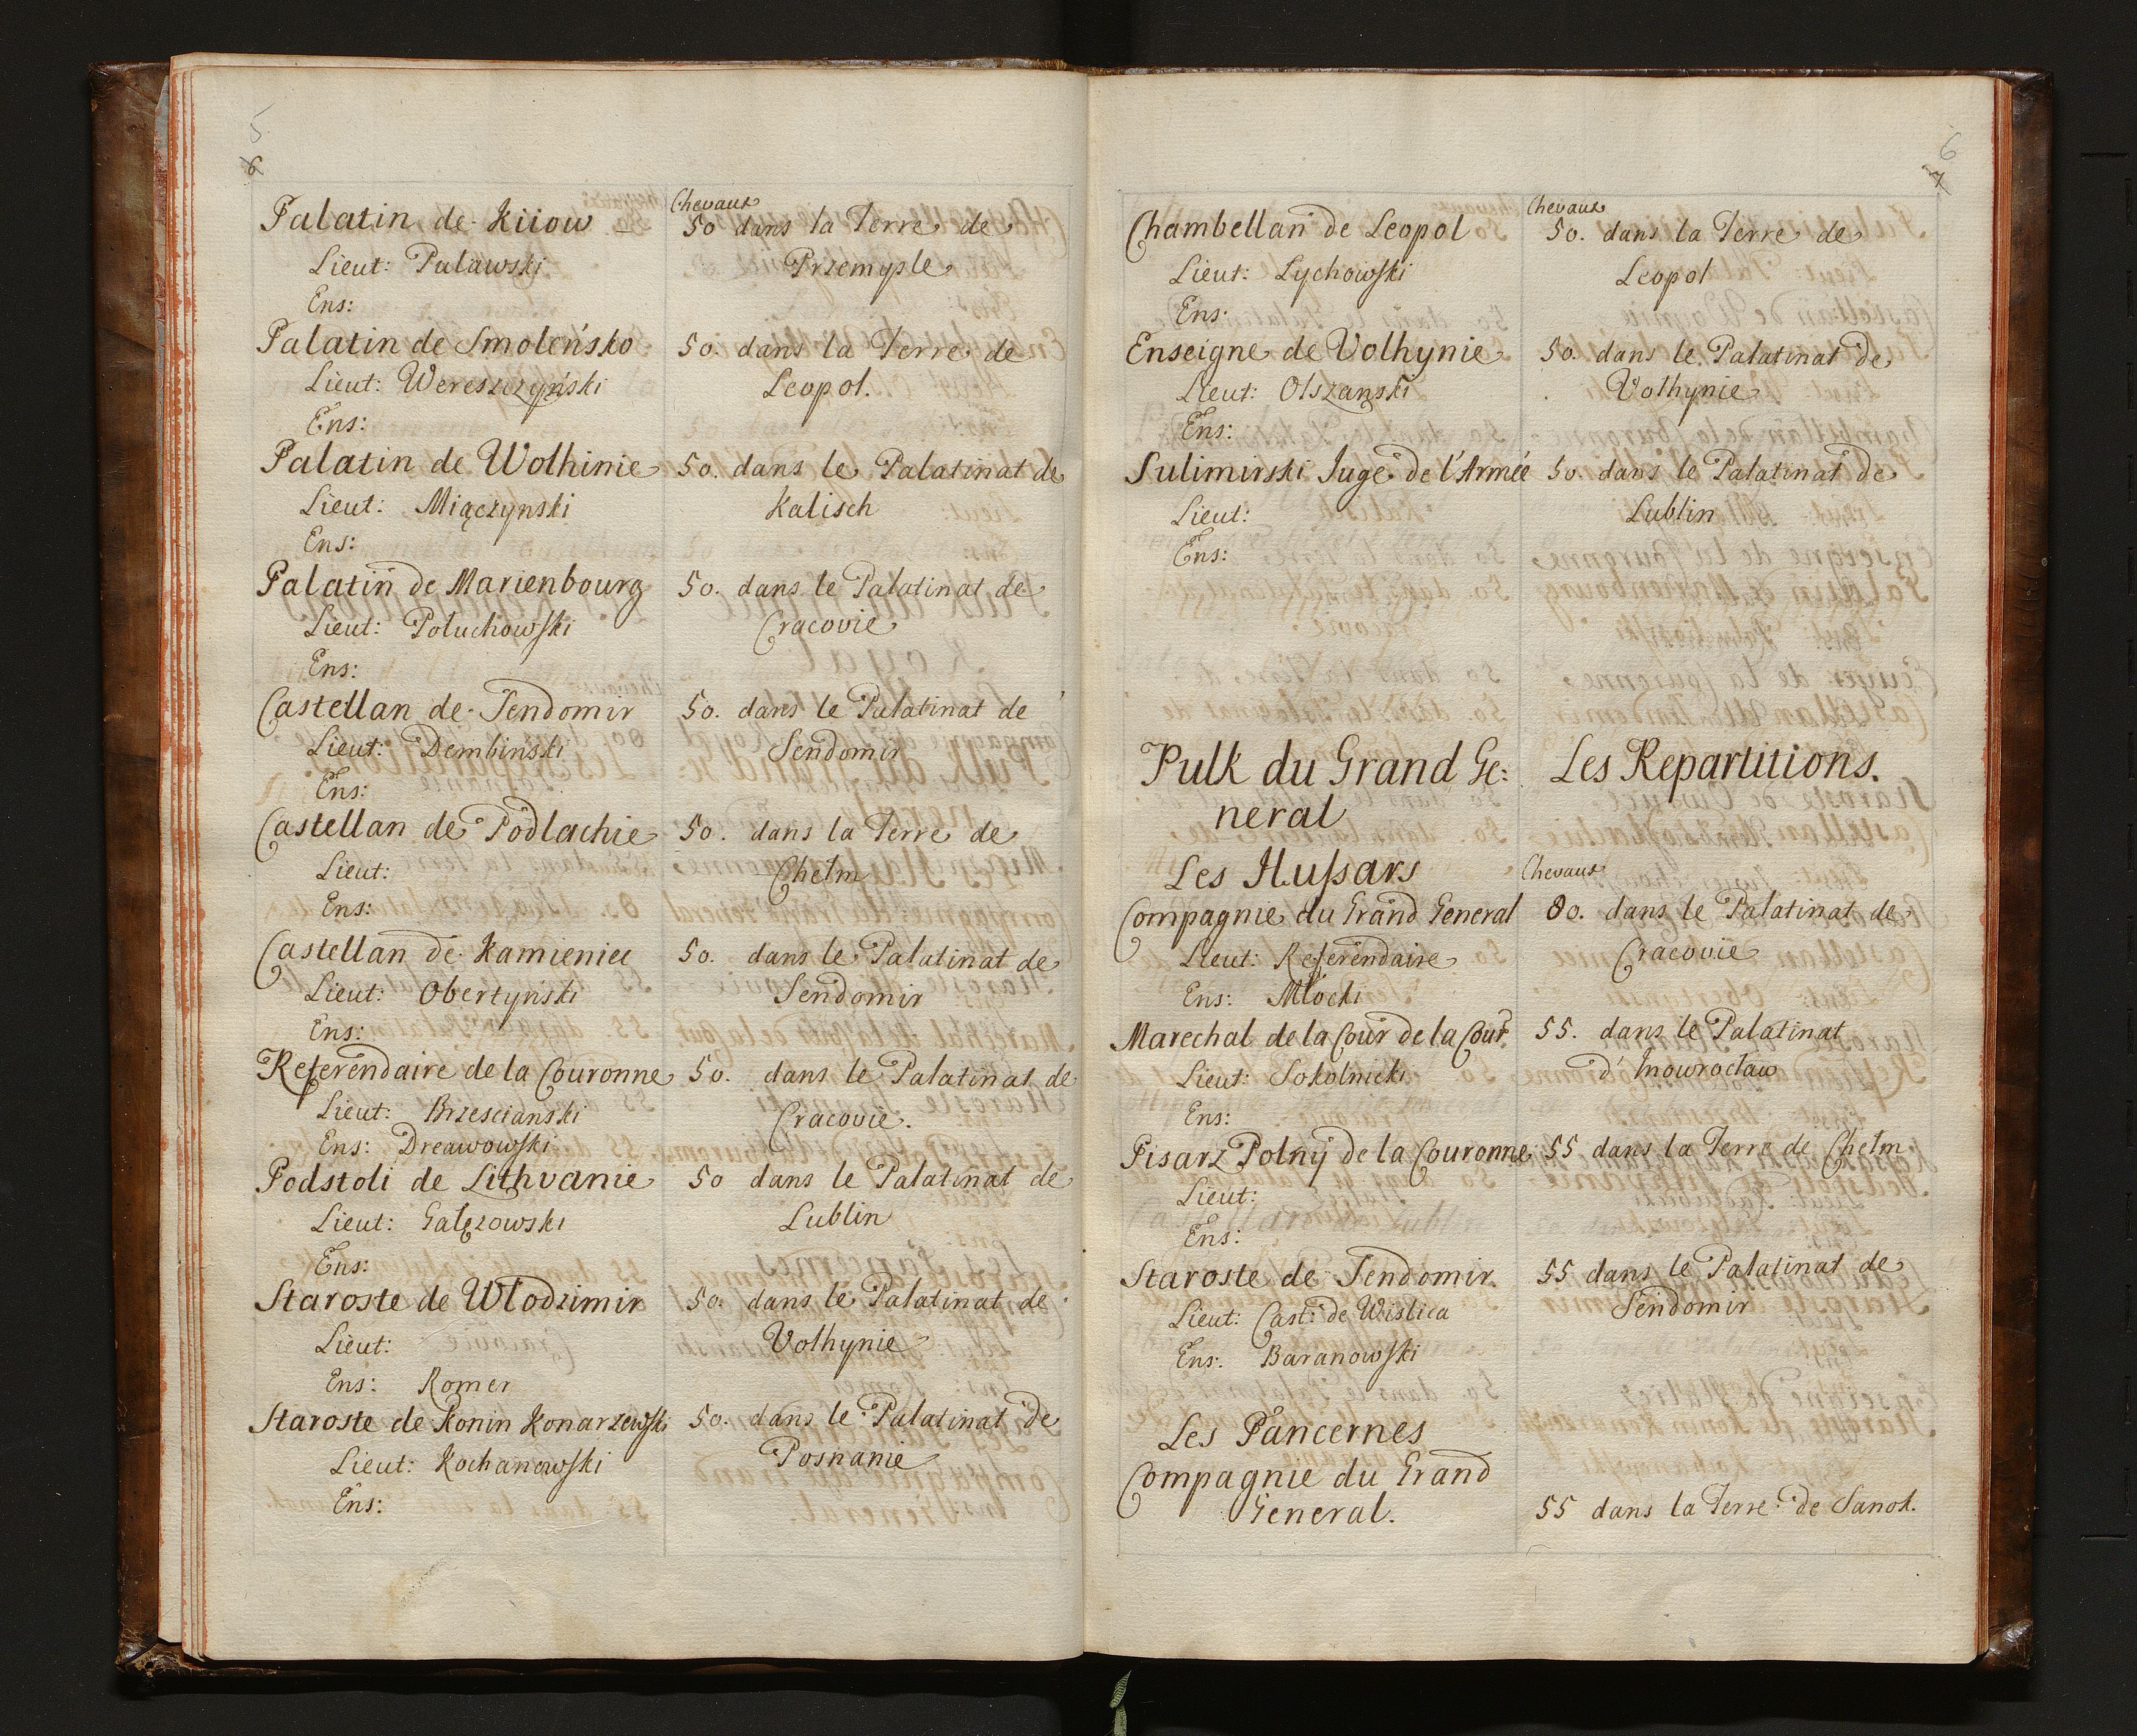 5
6
Chevaux
Palatin de Kiiow 50 dans la Terre de
Lieut: Pulawski Przemysle
Ens:
Palatin de Smoleńsko 50. dans la Terre de
Lieut: Wereszczyński Leopol.
Ens:
Palatin de Wolhinie 50. dans le Palatinat de
Lieut: Miączynski Kalisch
Ens:
Palatin de Marienbourg 50. dans le Palatinat de
Lieut: Potuchowski Cracovie
Ens:
Castellan de Sendomir 50. dans le Palatinat de
Lieut: Dembinski Sendomir
Ens:
Castellan de Podlachie 50. dans la Terre de
Lieut: Chelm
Ens:
Castellan de Kamieniec 50. dans le Palatinat de
Lieut: Obertyński Sendomir
Ens:
Referendaire de la Couronne 50. dans le Palatinat de
Lieut: Brzescianski Cracovie.
Ens: Dreawowski
Podstoli de Lithvanie 50 dans le Palatinat de
Lieut: Gałęzowski Lublin
Ens:
Staroste de Wlodzimir 50. dans le Palatinat de
Lieut: Volhynie
Ens: Romer
Staroste de Konin Konarzewski 50. dans le Palatinat de
Lieut: Kochanowski Posnanie
Ens:
6
7
Chevaux
Chambellan de Leopol 50. dans la Terre de
Lieut: Lychowski Leopol
Ens:
Enseigne de Volhynie 50. dans le Palatinat de
Lieut: Olszanski Volhynie
Ens:
Sulimirski Juge de l'Armée 50. dans le Palatinat de
Lieut: Lublin
Ens:
Pulk du Grand Ge: Les Repartitions.
neral
Les Hussars Chevaux
Compagnie du Grand General 80. dans le Palatinat de
Lieut: Referendaire Cracovie
Ens: Młocki
Marechal de la Cour de la Cour. 55. dans le Palatinat
Lieut: Sokolnicki d'Inowrocław
Ens:
Pisarz Polny de la Couronne 55 dans la Terre de Chelm
Lieut:
Ens:
Staroste de Sendomir. 55 dans le Palatinat de
Lieut: Cast: de Wislica Sendomir
Ens: Baranowski
Les Pancernes
Compagnie du Grand
General. 55 dans la Terre de Sanok.